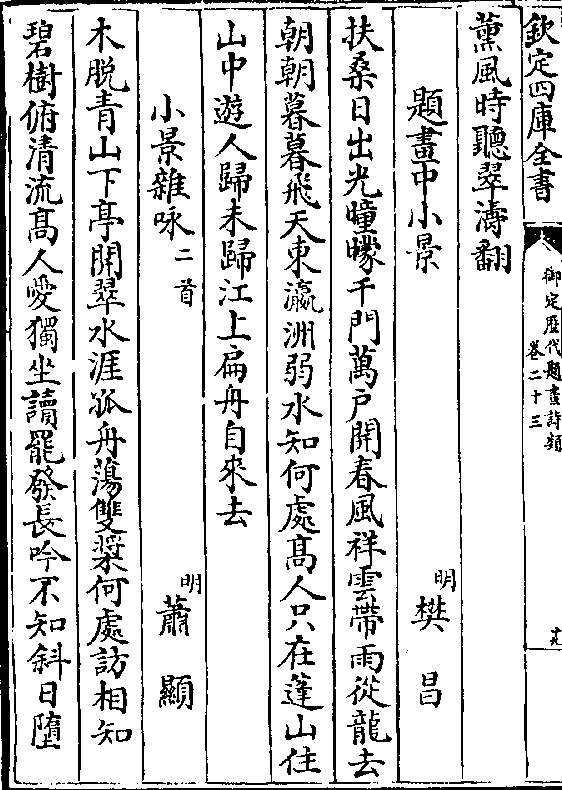 欽定四庫全書
御定歴代題畫詩類
卷二十三
薰風時聽翠濤翻
題畫中小景
明
樊昌
扶桑日出光曈曚千門萬户開春風祥雲帶雨從龍去
朝朝暮暮飛天東瀛洲弱水知何處高人只在蓬山住
山中遊人歸未歸江上扁舟自來去
小景雜咏二首
明
蕭顯
木脱青山下亭開翠水涯孤舟蕩雙槳何處訪相知
碧樹俯清流高人愛獨坐讀罷發長吟不知斜日墮